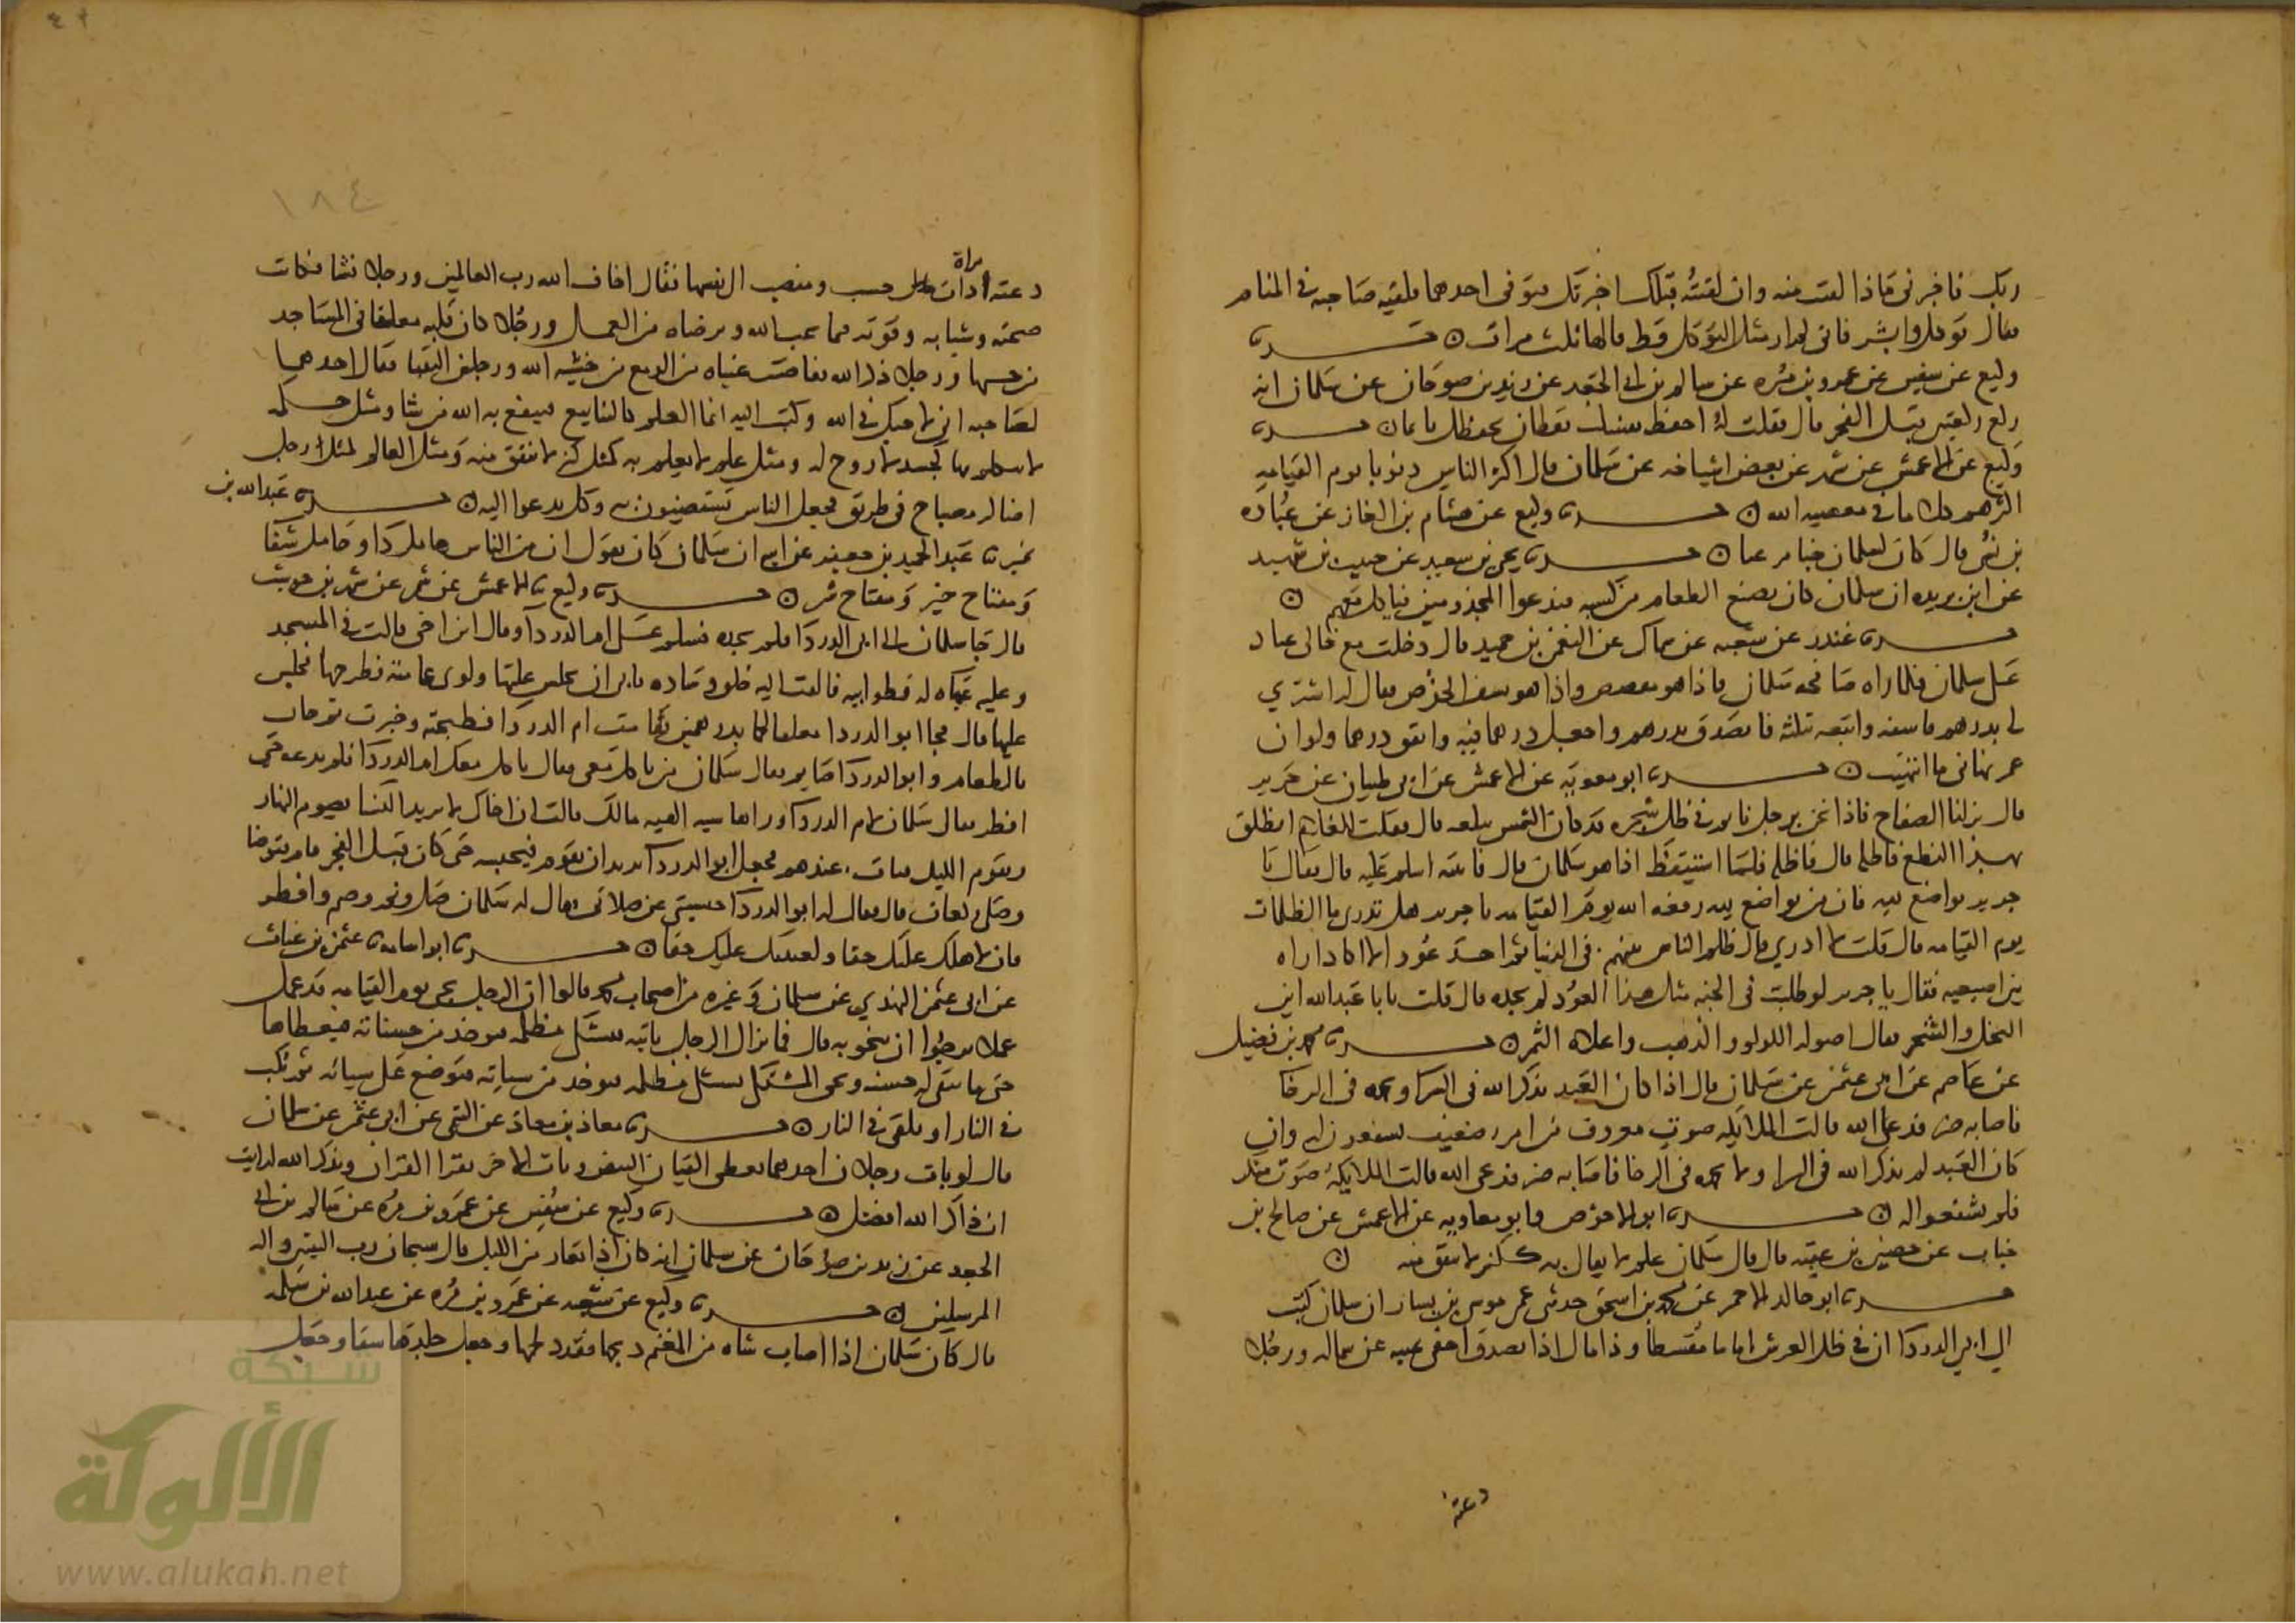 ربك فاخبرنى ماذا لقيت منه وان لقيته قبلك اخبرتك فتوفى احدهما فلقيه صاحبه فى المنام
فقال توكل وابشر فانى لم ار مثل التوكل قط قالها ثلث مرات ن حـــدثنا
وكيع عن سفين عن عمرو بن مره عن سالم بن ابى الجعد عن زيد بن صوحان عن سلمان انه
قبل الفجر قال فقلت له احفظ نفسك يقظان يحفظك نائما ن حـــدثنا
وكيع عن الاعمش عن شمر عن بعض اشياخه عن سلمان قال اكثر الناس ذنوبا يوم القيامه
اكثرهم كلاما فى معصيه الله ن حـــدثنا وكيع عن هشام بن الغاز عن عباده
بن نسى قال كان لسلمان خبا من عبا ن حـــدثنا يحيى بن سعيد عن حبيب بن شهيد
عن ابن بريده ان سلمان كان يصنع الطعام من كسبه فيدعوا المجذومين فياكل معهم ن
حـــدثنا غندر عن شعبه عن سماك عن النعمن بن حميد قال دخلت مع خالى عباد
على سلمان فلما راه صافحه سلمان فاذا هو مقصص واذا هو يسف الخوص فقال انه اشترى
لى بدرهم فاسفه وابيعه بثلثه فاتصدق بدرهم واجعل درهما فيه وانفق درهما ولو ان
عمر نهانى ما انتهيت ن حـــدثنا ابو معويه عن الاعمش عن ابى ظبيان عن جرير
قال نزلنا الصفاح فاذا نحن برجل نايم فى ظل شجره قد كادت الشمس تبلغه قال فقلت للغلام انطلق
بهذا النطع فاظله قال فاظله فلما استيقظ اذا هو سلمان قال فاتيته اسلم عليه قال فقال يا
جرير تواضع لله فان من تواضع لله رفعه الله يوم القيامه يا جرير هل تدرى ما الظلمات
يوم القيامه قال قلت لا ادري قال ظلم الناس بينهم فى الدنيا ثم اخذ عودا لا اكاد اراه
بين اصبعيه فقال يا جرير لو طلبت فى الجنه مثل هذا العود لم تجده قال قلت يابا عبدالله اين
النخل والشجر فقال اصوله اللولو والذهب واعلاه الثمر ن حـــدثنا محمد بن فضيل
عن عاصم عن ابى عثمن عن سلمان قال اذا كان العبد يذكر الله فى السرا ويحمده فى الرخا
فاصابه ضر فدعا الله قالت الملايكه صوت معروف من امرء ضعيف فيشفعون له وان
كان العبد لم يذكر الله فى السرا ولا يحمده فى الرخا فاصابه ضر فدعى الله قالت الملايكه صوت منكر
فلم يشفعوا له ن حـــدثنا ابو الاحوص وابو معاويه عن الاعمش عن صالح بن
خباب عن حصين بن عقبه قال قال سلمان علم لا يقال به ككنز لا ينفق منه ن
حـــدثنا ابو خالد الاحمر عن محمد بن اسحق حدثنى عمى موسى بن يسار ان سلمان كتب
الى ابى الدردا ان فى ظل العرش اماما مقسطا وذا مال اذا تصدق اخفى يمينه عن شماله ورجلا
دعته
١٨٤
دعته امراة ذات حسب ومنصب الى نفسها فقال اخاف الله رب العالمين ورجلا نشا فكانت
صحبته وشبابه وقوته فيما يحب الله ويرضاه من العمل ورجلا كان قلبه معلقا فى المساجد
من حبها ورجلا ذكر الله ففاضت عيناه من الدمع من خشيه الله ورجلين التقيا فقال احدهما
لصاحبه انى لاحبك فى الله وكتب اليه انما العلم كالينابيع فينفع به الله من شا ومثل حكمه
لا يتكلم بها كجسد لا روح له ومثل علم لا يعلم به كمثل كنز لا ينفق منه ومثل العالم كمثل رجل
اضا له مصباح فى طريق فجعل الناس يستضيئون به وكل يدعوا اليه ن حـــدثنا عبدالله بن
نمير نا عبد الحميد بن جعفر عن ابيه ان سلمان كان يقول ان من الناس حامل دا وحامل شفا
ومفتاح خير ومفتاح شر ن حـــدثنا وكيع نا الاعمش عن شمر عن شهر بن حوشب
قال جا سلمان الى ابى الدردا فلم يجده فسلم على ام الدردا وقال اين اخى قالت فى المسجد
وعليه عباه له قطوانيه فالقت اليه خلق وساده فابى ان يجلس عليها ولوى عمامته فطرحها فجلس
عليها قال فجا ابو الدردا معلقا لحما بدرهمين فقامت ام الدردا فطبخته وخبزت ثم جات
بالطعام وابو الدردا صايم فقال سلمان من ياكل معى فقال ياكل معك ام الدردا فلم يدعه حتى
افطر فقال سلمان لام الدردا وراها سيه الهيه مالك قالت ان اخاك لا يريد النسا يصوم النهار
ويقوم الليل فبات عندهم فجعل ابو الدردا يريد ان يقوم فيحبسه حتى كان قبل الفجر قام فتوضا
وصلى ركعات قال فقال له ابو الدردا حبستنى عن صلاتى فقال له سلمان صل ونم وصم وافطر
فان لاهلك عليك حقا ولعينك عليك حقا ن حـــدثنا ابو اسامه نا عثمن بن غياث
عن ابى عثمن النهدي عن سلمان وغيره من اصحاب محمد قالوا ان الرجل يجى يوم القيامه قد عمل
عملا يرجوا ان ينجو به قال فما يزال الرجل ياتيه يشتكى مظلمه فيوخذ من حسناته فيعطاها
حتى ما تبقى له حسنه ويجى المشتكى يشتكى مظلمه فيوخذ من سياته فتوضع على سياته ثم يكب
فى النار او يلقى فى النار ن حـــدثنا معاذ بن معاذ عن التيمى عن ابى عثمن عن سلمان
قال لو بات رجلان احدهما يعطى القيان البيض وبات الاخر يقرا القران ويذكر الله لرايت
ان ذاكر الله افضل ن حـــدثنا وكيع عن سفين عن عمرو بن مره عن سالم بن ابى
الجعد عن زيد بن صوحان عن سلمان انه كان اذا تعار من الليل قال سبحان رب النبيين واله
المرسلين ن حـــدثنا وكيع عن شعبه عن عمرو بن مره عن عبدالله بن سلمه
قال كان سلمان اذا اصاب شاه من المغنم ذبحها فقدد لحمها وجعل جلدها سقا وجعل
شبكة
الألوكة
www.alukah.net